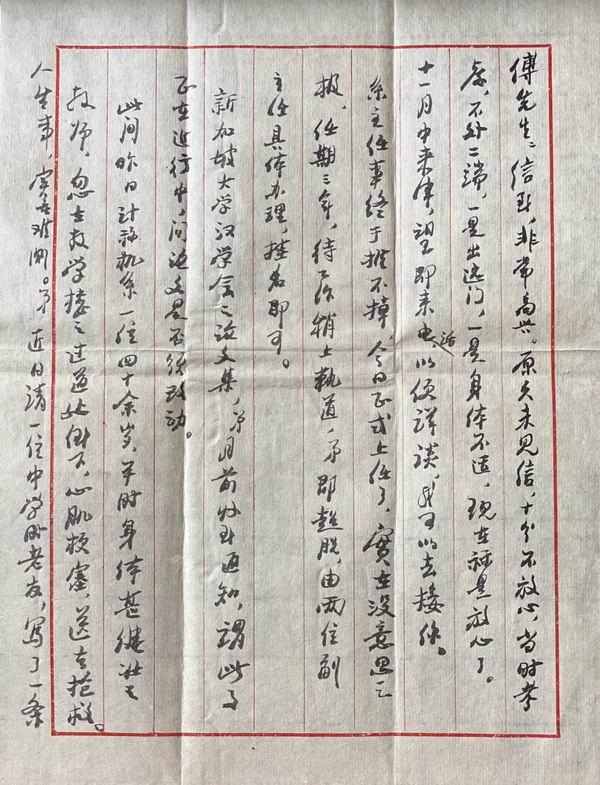 傅先生：信到，非常高兴。原久未见信，十分不放心，当时考
虑，不外二端，一是出远门，一是身体不适，现在算是放心了。
十一月中来津，望即来电话以便详谈，我可以去接你。
系主任事终于推不掉，今日正式上任了，实在没意思之
极，任期三年，待工作稍上轨道，弟即超脱，由两位副
主任具体办理，挂名即可。
新加坡大学汉学会之论文集，弟月前收到通知，谓此事
正在进行中，问论文是否须改动。
此间昨日计算机系一位四十余岁，平时身体甚健壮之
教师，忽在教学楼之过道处倒下，心肌梗塞，送去抢救。
人生事，实在难测。弟近日请一位中学时老友，写了一条